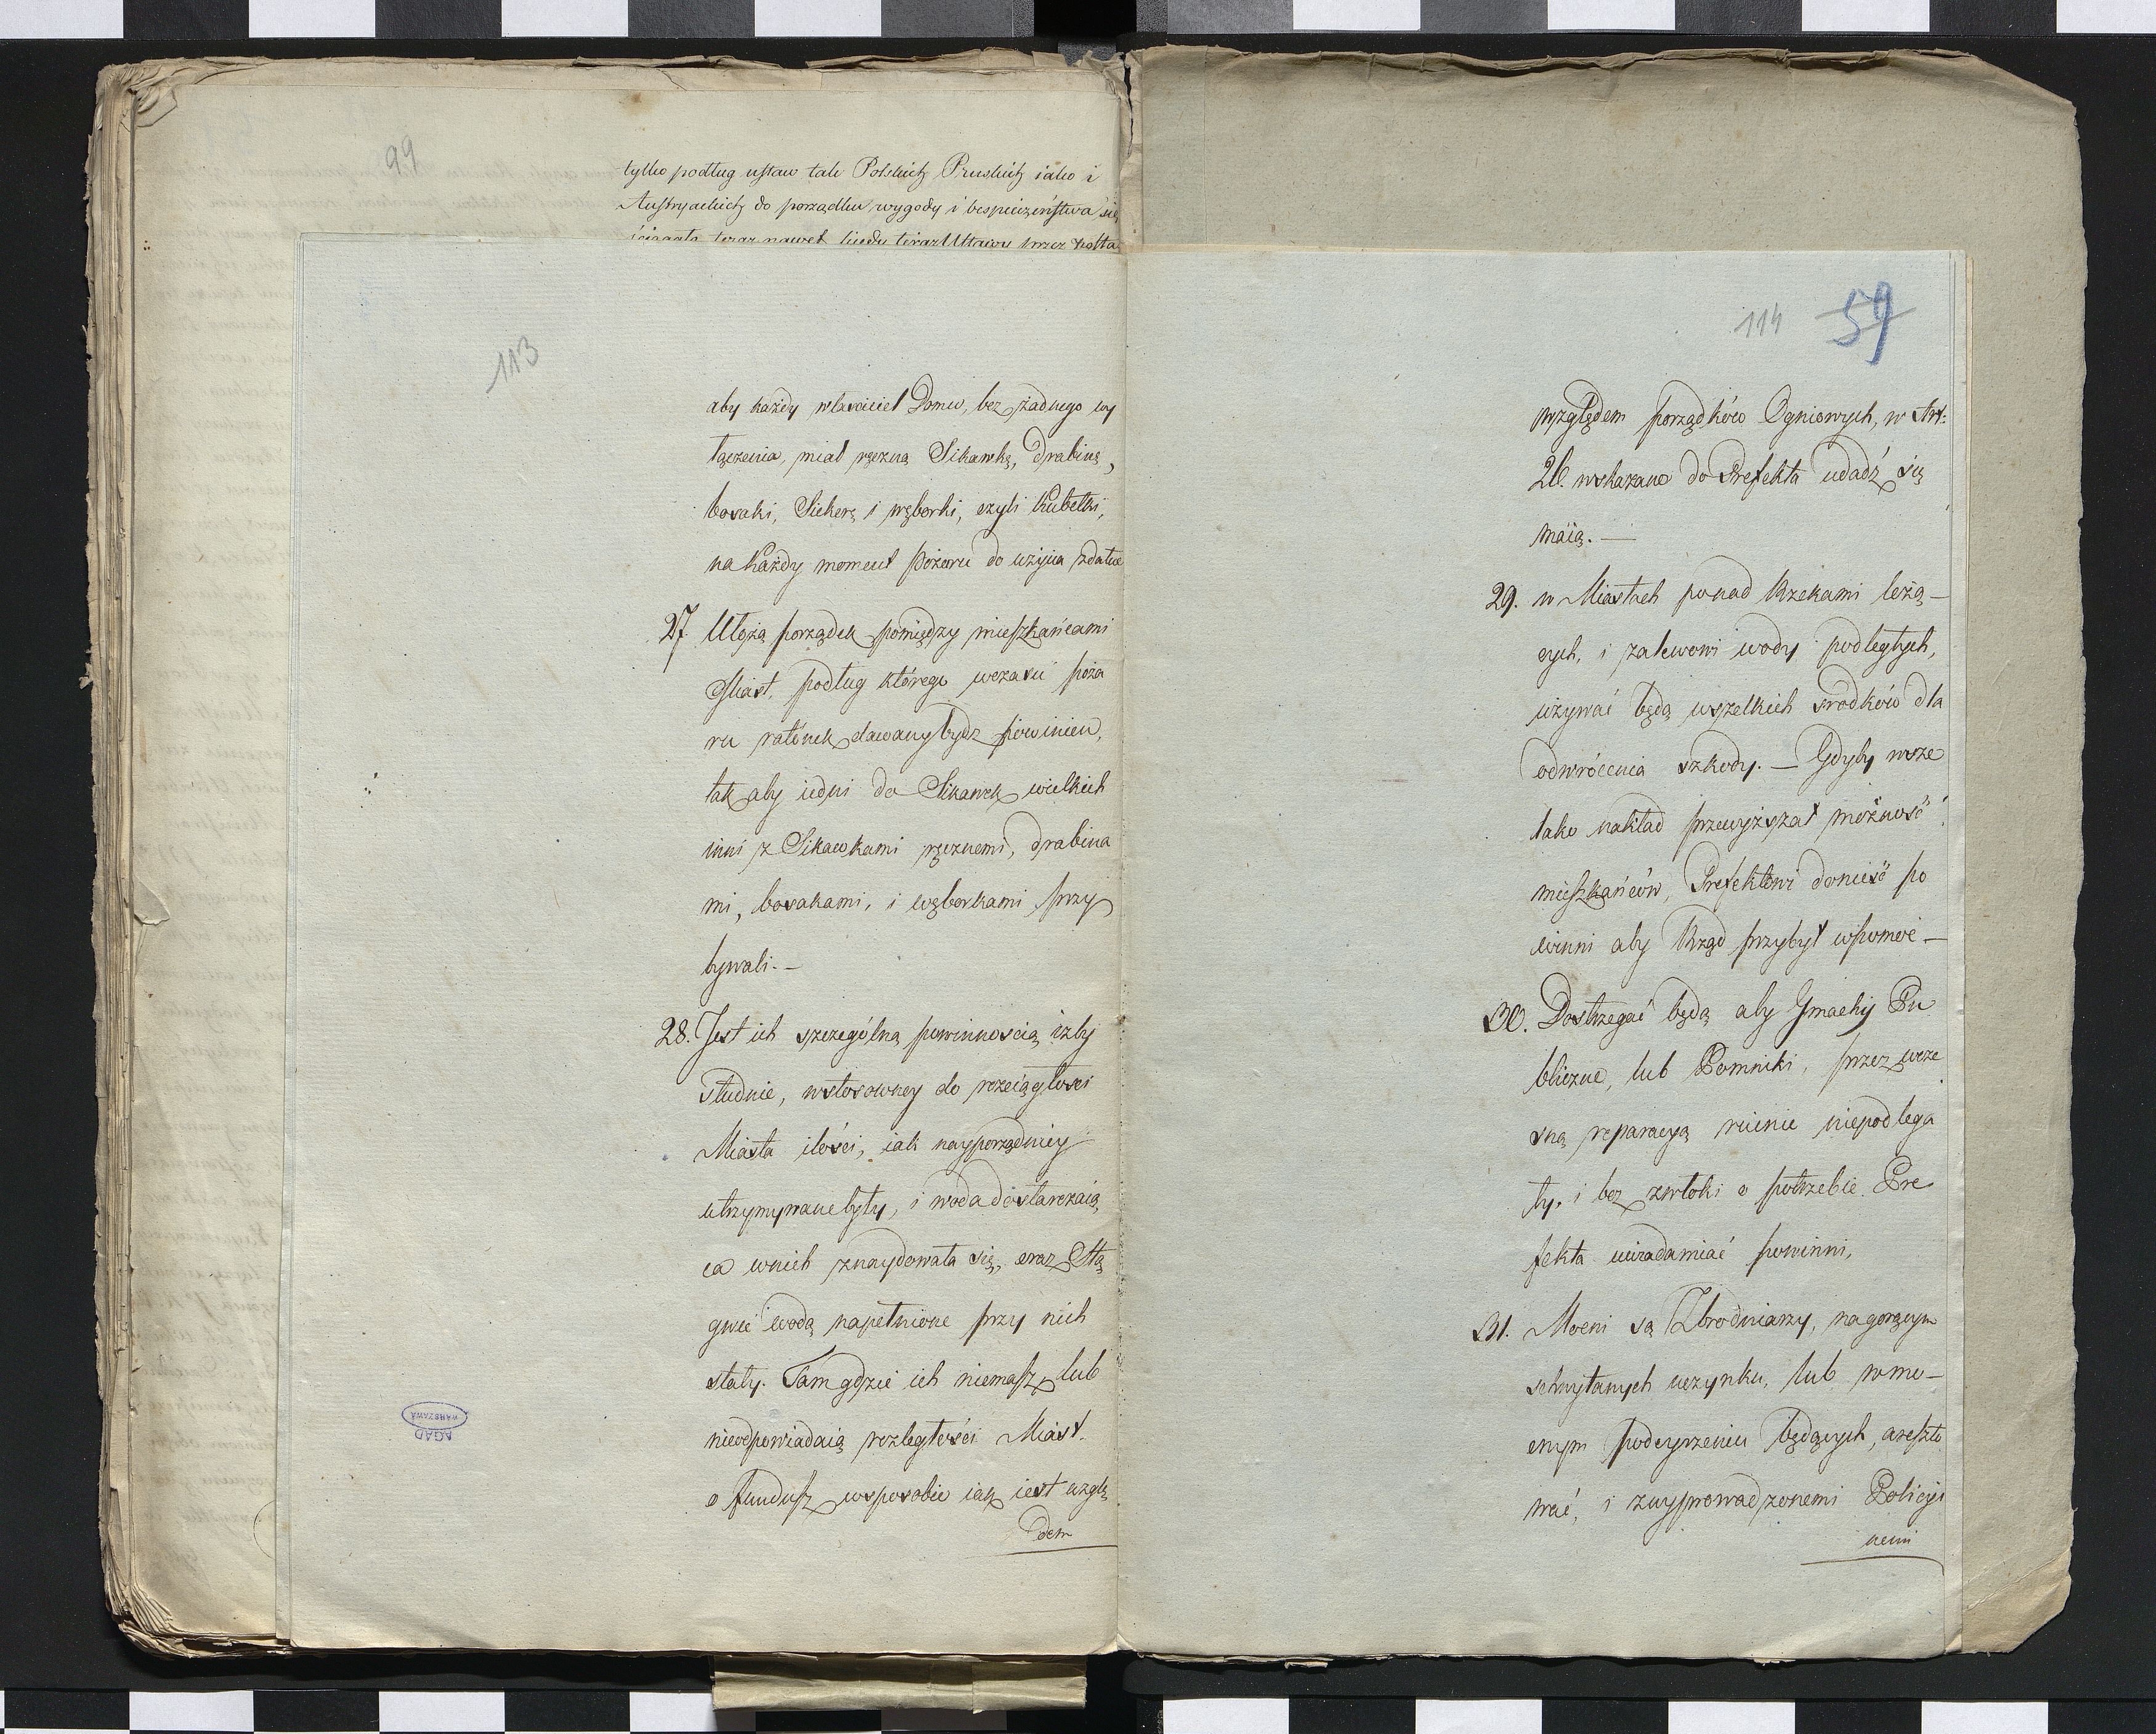 99
tylko podług ustaw tak Polskich Pruskich iako i
Austryackich do porządku wygody i bespieczeństwa się
113
aby każdy własciciel Domu, bez żadnego wy
łączenia, miał ręczną Sikawkę, drabinę,
bosaki, Siekerę i węborki, czyli Kubełki,
na Każdy moment pożaru do użycia zdatne
27. Ułożą porządek pomiędzy mieszkańcami
Miast, podług którego wczasie poża
ru ratunek dawany bydz powinien,
tak aby iedni do Sikawek wielkich
inni z Sikawkami ręcznemi, drabina
mi, bosakami, i węborkami przy
bywali. —
28. Jest ich szczególną powinnoscią izby
studnie, wstosowney do rozciągłosci
Miasta ilości, iak nayporządniey
utrzymywane były, i woda dostarczaią
ca wnich znaydowała się, oraz Stą
gwie wodą napełnione przy nich
stały. Tam gdzie ich niemasz lub
nieodpowiadaią rozległości Miast
o fundusz wsposobie iak iest wzglę
dem
AGAD
WARSZAWA
114 59
względem porządków Ogniowych, w Art:
26. wskazano do Prefekta udadź się
maią. —
29. w Miastach ponad Rzekami leżą —
cych, i zalewowi wody podległych,
używać będą wszelkich srodków dla
odwrócenia szkody. — Gdyby wsze
lako nakład przewyższał możność
mieszkańców, Prefektowi donieść po
winni aby Rząd przybył wpomoc —
30. Dostrzegać będą aby Gmachy Pu
bliczne, lub Pomniki, przez wcze
sną reparacyą ruinie niepodlega
ły, i bez zwłoki o potrzebie Pre
fekta uwiadamiać powinni,
31. Mocni są Zbrodniarzy, nagorącym
schwytanych uczynku, lub wmo —
cnym podeyrzeniu będących, areszto
wać, i zwyprowadzonemi Policyi
nemi